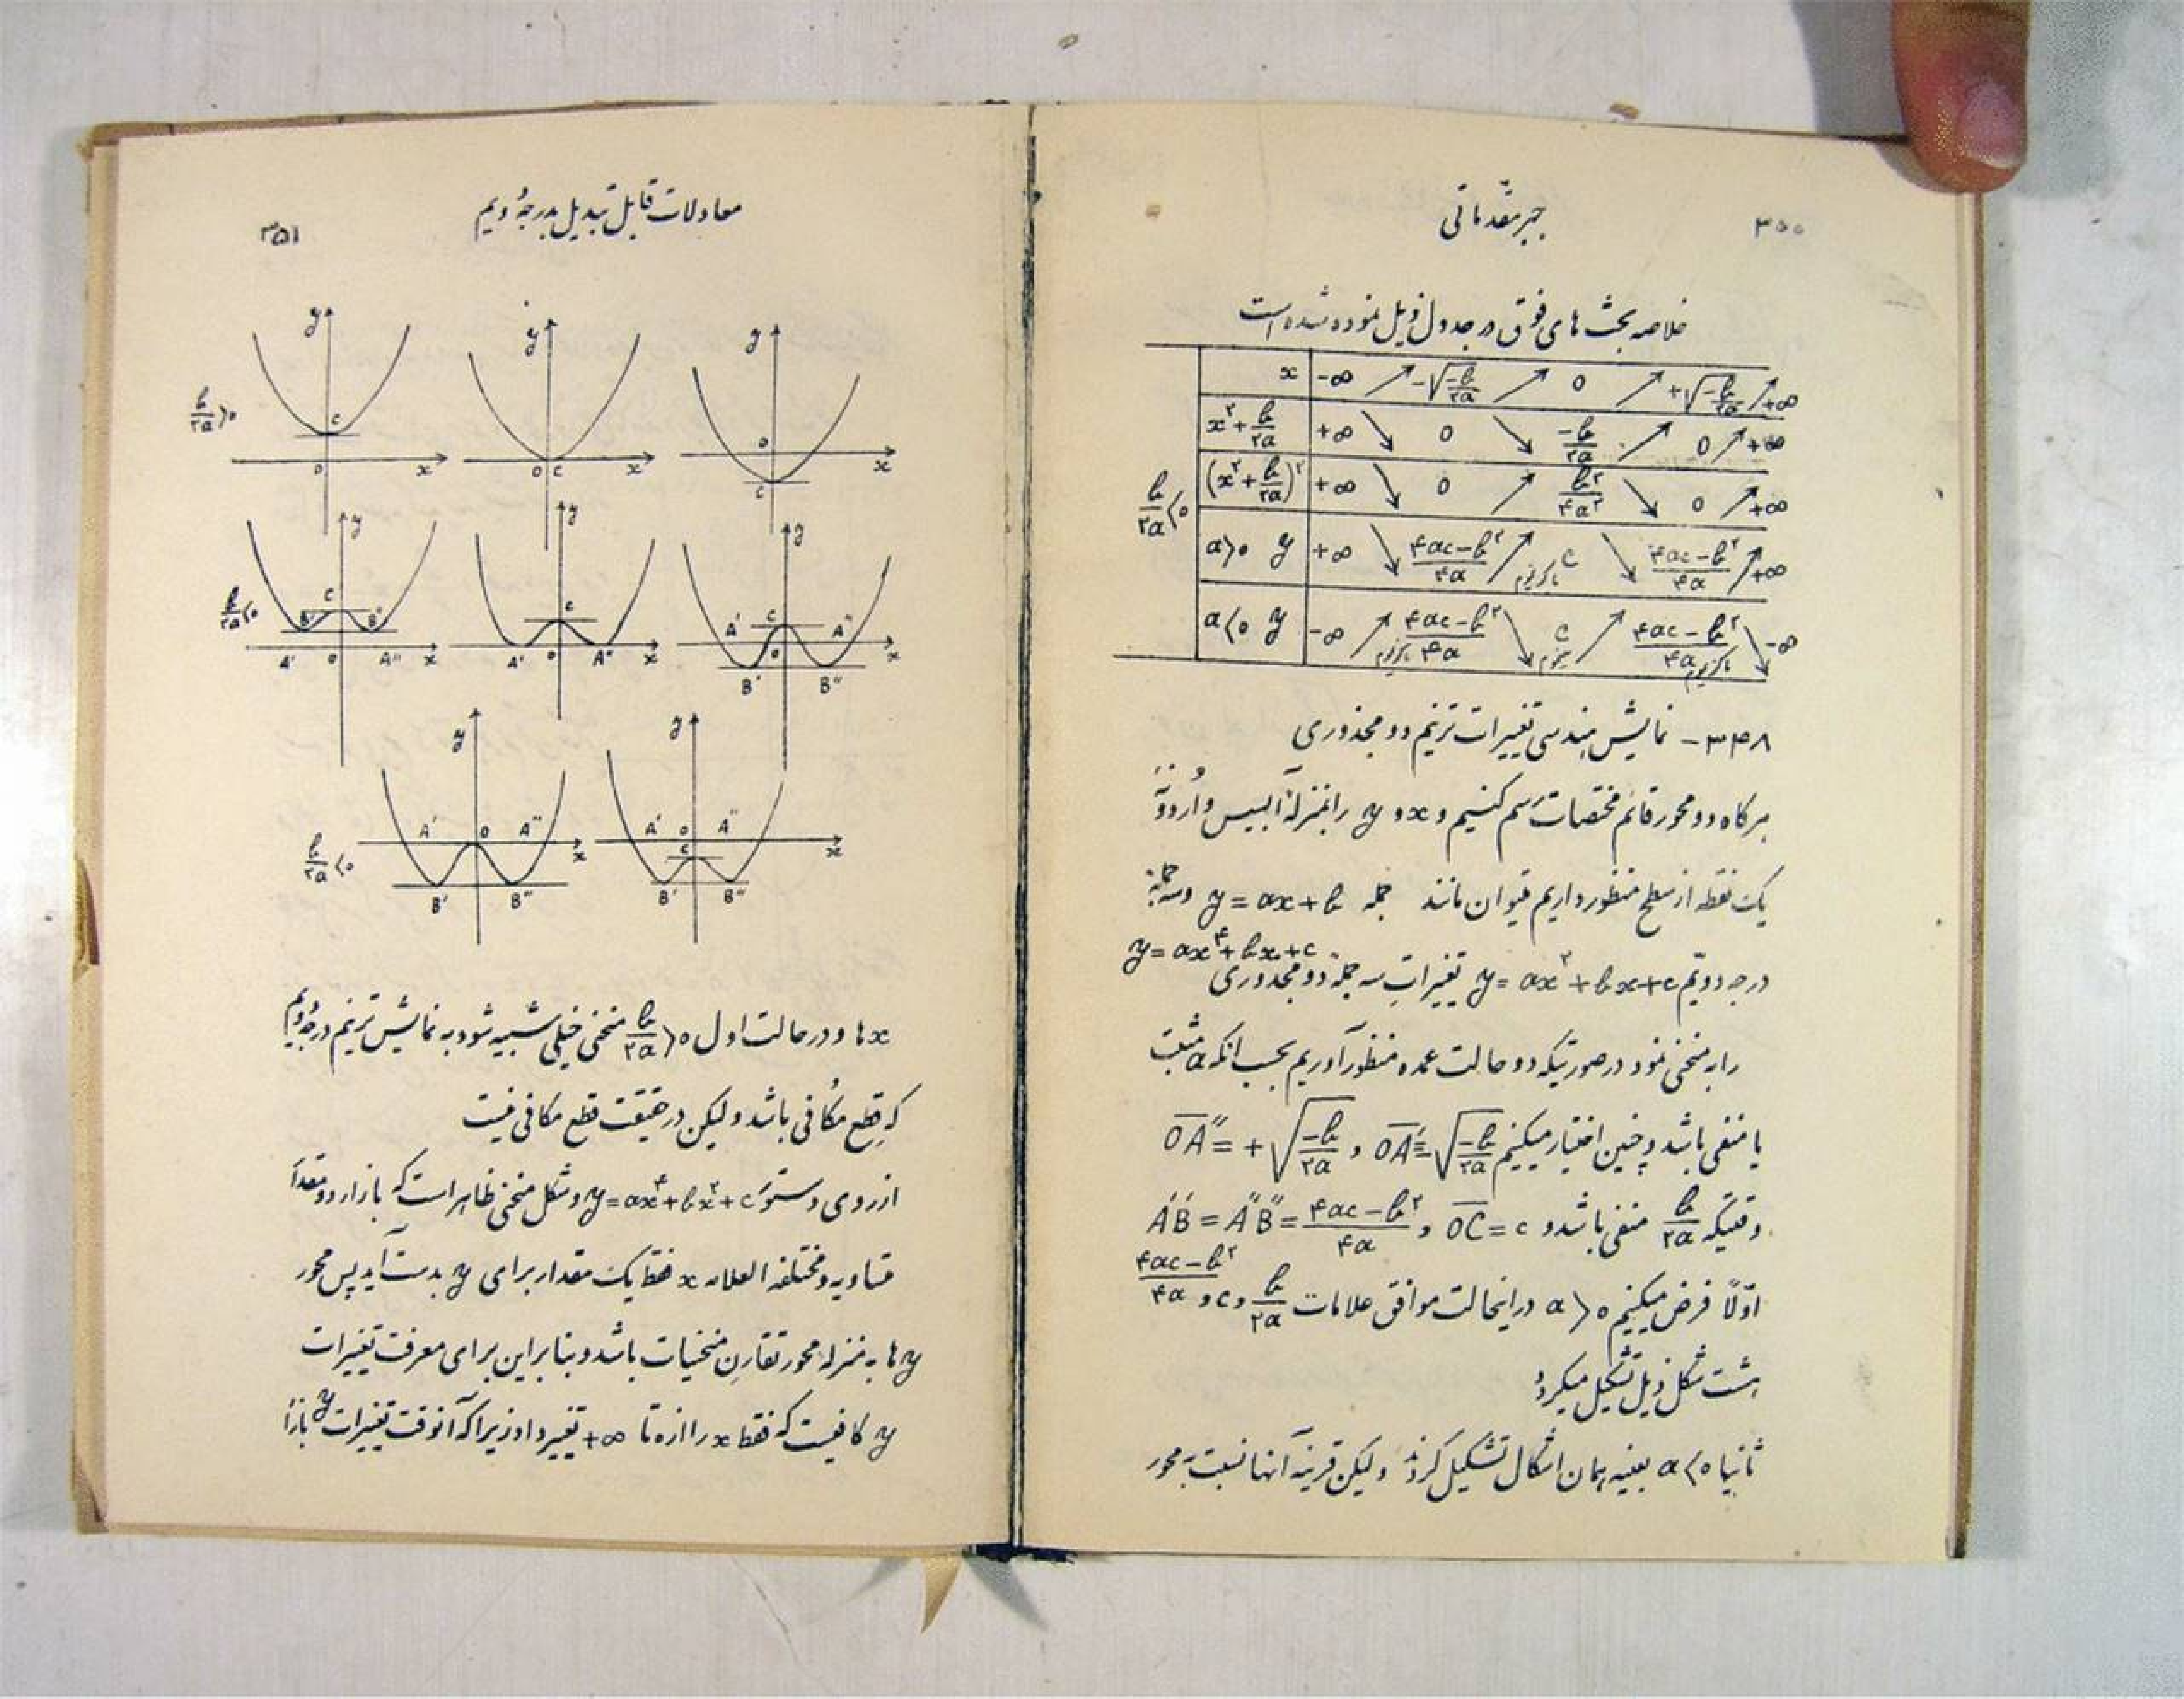 ۳۵۰
جبر مقدماتی
خلاصه بحث های فوق در جدول ذیل نموده شده است
x -∞ ↗ -√(-b/۲a) ↗ 0 ↗ +√(-b/۲a) ↗ +∞
x²+b/۲a +∞ ↘ 0 ↘ -b/۲a ↗ 0 ↗ +∞
b/۲a<0 (x²+b/۲a)² +∞ ↘ 0 ↗ b²/۴a² ↘ 0 ↗ +∞
a>0 y +∞ ↘ ۴ac-b²/۴a ↗ c ↘ ۴ac-b²/۴a ↗ +∞
a<0 y -∞ ↗ ۴ac-b²/۴a ↘ c ↗ ۴ac-b²/۴a ↘ -∞
۳۴۸ - نمایش هندسی تغییرات ترینم دو مجذوری
هرگاه دو محور قائم مختصات رسم کنیم و x و y را بمنزله آبسیس و اُردونه
یک نقطه از سطح منظور داریم میتوان مانند جمله y = ax+b وسه جمله
y = ax⁴+bx+c
درجه دویم y = ax²+bx+c تغییرات سه جمله دو مجذوری
را به منحنی نمود در صورتیکه دو حالت عمده منظور آوریم بحسب انکه a مثبت
یا منفی باشد و چنین اختیار میکنیم OA'=-√(-b/۲a) و OA''=+√(-b/۲a)
وقتیکه b/۲a منفی باشد و OC=c و A'B'=A''B''=۴ac-b²/۴a
اوّلاً فرض میکنیم a>0 در اینحالت موافق علامات b/۲a و c و ۴ac-b²/۴a
هشت شکل ذیل تشکیل میگردد
ثانیا a<0 بعینه همان اشکال تشکیل گردند ولیکن قرینه آنها نسبت به محور
معادلات قابل تبدیل بدرجهٔ دویم
۳۵۱
b/۲a>0 y c o x y o c x y o c x
b/۲a<0 y c B' B'' A' o A'' x y c A' o A'' x y A' c A'' o x B' B''
b/۲a<0 y A' o A'' x B' B'' y A' o A'' c x B' B''
x ها و در حالت اول b/۲a>0 منحنی خیلی شبیه شود به نمایش ترینم درجهٔ دویم
که قطع مُکافی باشد ولیکن در حقیقت قطع مکافی نیست
از روی دستور y=ax⁴+bx²+c و شکل منحنی ظاهر است که بازاء دو مقدار
متساویه و مختلفه العلامه x فقط یک مقدار برای y بدست آید پس محور
y ها به منزله محور تقارن منحنیات باشد و بنابراین برای معرفت تغییرات
y کافیست که فقط x را از 0 تا +∞ تغییر داد زیرا که آنوقت تغییرات y بازاء